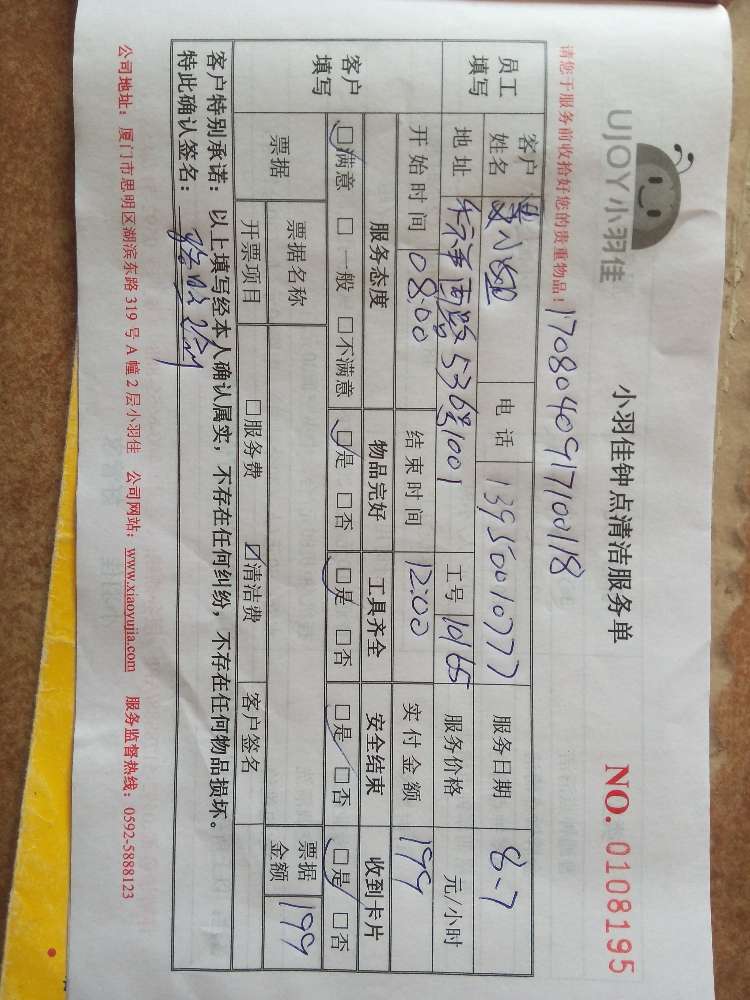 UJOY小羽佳
小羽佳钟点清洁服务单
NO. 0108195
请您于服务前收拾好您的贵重物品！ 1708040917100118
员工填写 客户姓名 小姐 电话 13950010777 服务日期 8-7
地址 西路536号1001 工号 10165 服务价格 元/小时
开始时间 08:00 结束时间 12:00 实付金额 199
客户填写 服务态度 物品完好 工具齐全 安全结束 收到卡片
☑满意 □一般 □不满意 ☑是 □否 ☑是 □否 ☑是 □否 ☑是 □否
票据 票据名称 票据金额 199
开票项目 □服务费 ☑清洁费 客户签名
客户特别承诺：以上填写经本人确认属实，不存在任何纠纷，不存在任何物品损坏。
特此确认签名：
公司地址：厦门市思明区湖滨东路 319 号 A 幢 2 层小羽佳 公司网站：www.xiaoyujia.com 服务监督热线：0592-5888123